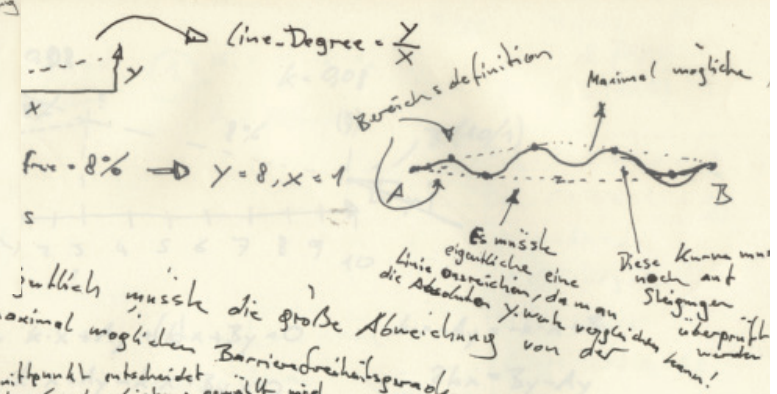 Line-Degree = Y/X
y
x
Bereichsdefinition
Maximal mögliche
free = 8% ⇒ Y = 8, X = 1
s
A
B
Es müsste
eigentliche eine
Linie ausreichen, da man
die Absoluten Y-Werte vergleichen kann!
Diese Kurve muss
noch auf
Steigungen
überprüft
werden
müsste die große Abweichung von der
maximal möglichen Barrierefreiheitsgerade
entscheidet